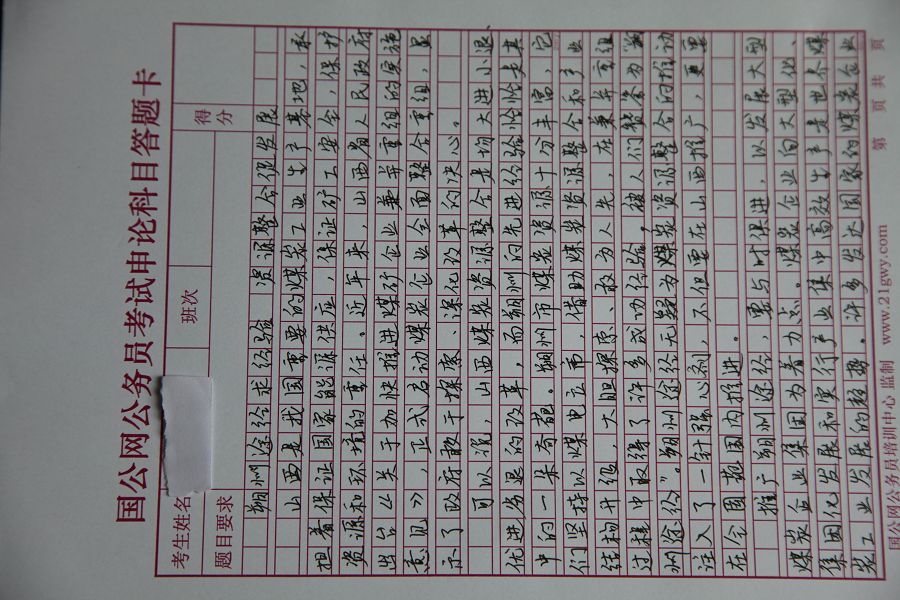 国公网公务员考试申论科目答题卡
考生姓名 班次 得分
题目要求
朔州途径求经验 资源整合促发展
山西是我国重要的煤炭工业生产基地，承
担着保证国家能源供应，保证矿工安全，保护
资源和环境的重任。近年来，山西省人民政府
出台《关于加快推进煤矿企业兼并重组的实施
意见》，正式启动煤炭企业全面整合重组，显
示了政府敢于探索、深化改革的决心。
可以说，山西煤炭资源整合是场大进小退
优进劣退的改革，而朔州的先进经验恰恰是其
中的一朵奇葩。朔州市煤炭资源十分丰富，它
们坚持以煤电立市，借助煤炭资源整合和产业
结构升级，大胆探索、敢为人先，在兼并重组
过程中取得了许多成功经验，被人们赞誉为“朔
州途径”。朔州途径无疑为煤炭资源整合的推动
注入了一针强心剂，不但要在山西推广，更要
在全国范围内推进。
推广朔州途经，要与时俱进，以发展大型
煤炭企业集团为着力点。煤炭企业向大型化、
集团化发展和实行产业集中高效生产是世界煤
炭工业发展的趋势。许多发达国家的煤炭企业
国公网公务员培训中心 监制 www.21gwy.com 第 页 共 页